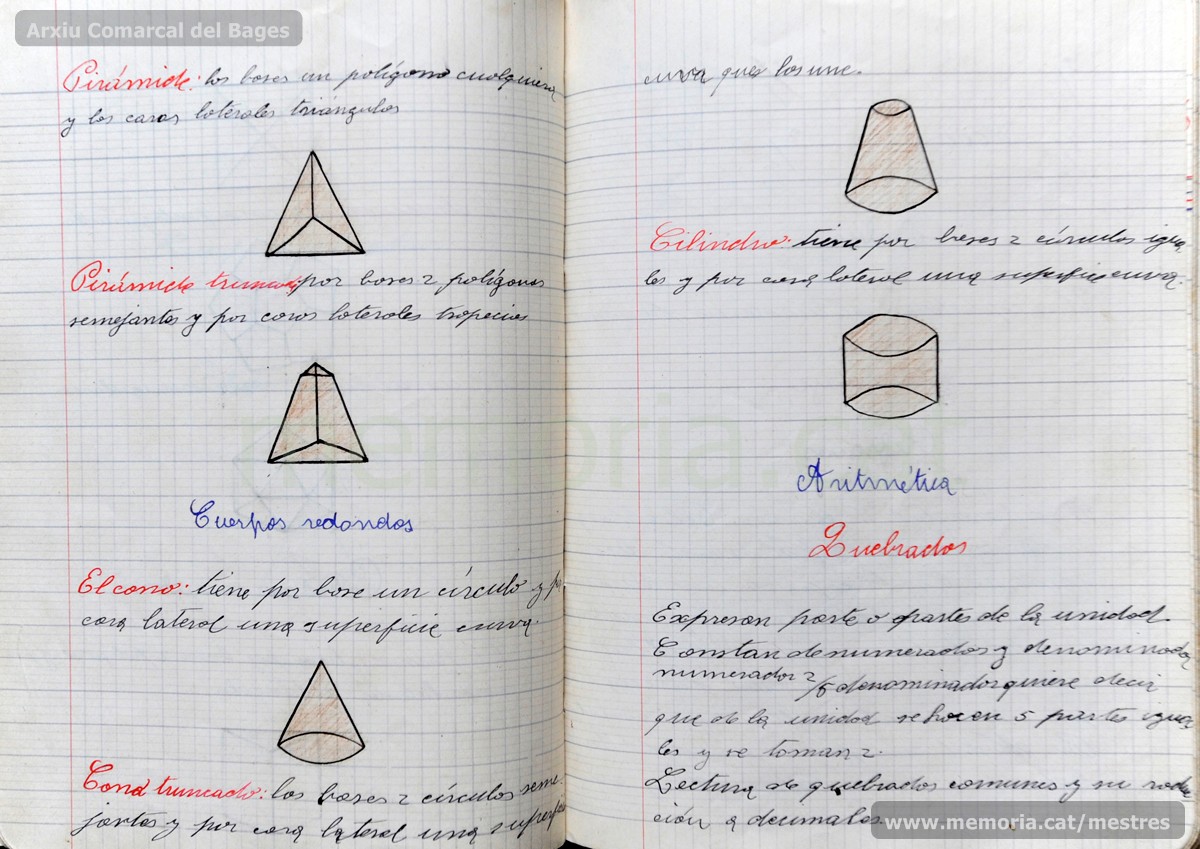 Arxiu Comarcal del Bages
Pirámide: los bases un polígono cualquiera
y los caras laterales triángulos
Pirámide truncada por bases 2 polígonos
semejantes y por caras laterales trapecios
Cuerpos redondos
El cono: tiene por base un círculo y por
cara lateral una superficie curva.
Cono truncado: los bases 2 círculos seme-
jantes y por cara lateral una superficie
curva que los une.
Cilindro: tiene por bases 2 círculos igua
les y por cara lateral una superficie curva.
Aritmética
Quebrados
Expresan parte o partes de la unidad.
Constan de numerados y denominador
numerador 2/5 denominador quiere decir
que de la unidad se hacen 5 partes igua
les y se toman 2.
Lectura de quebrados comunes y su
ción a decimales.
www.memoria.cat/mestres
memoria.cat